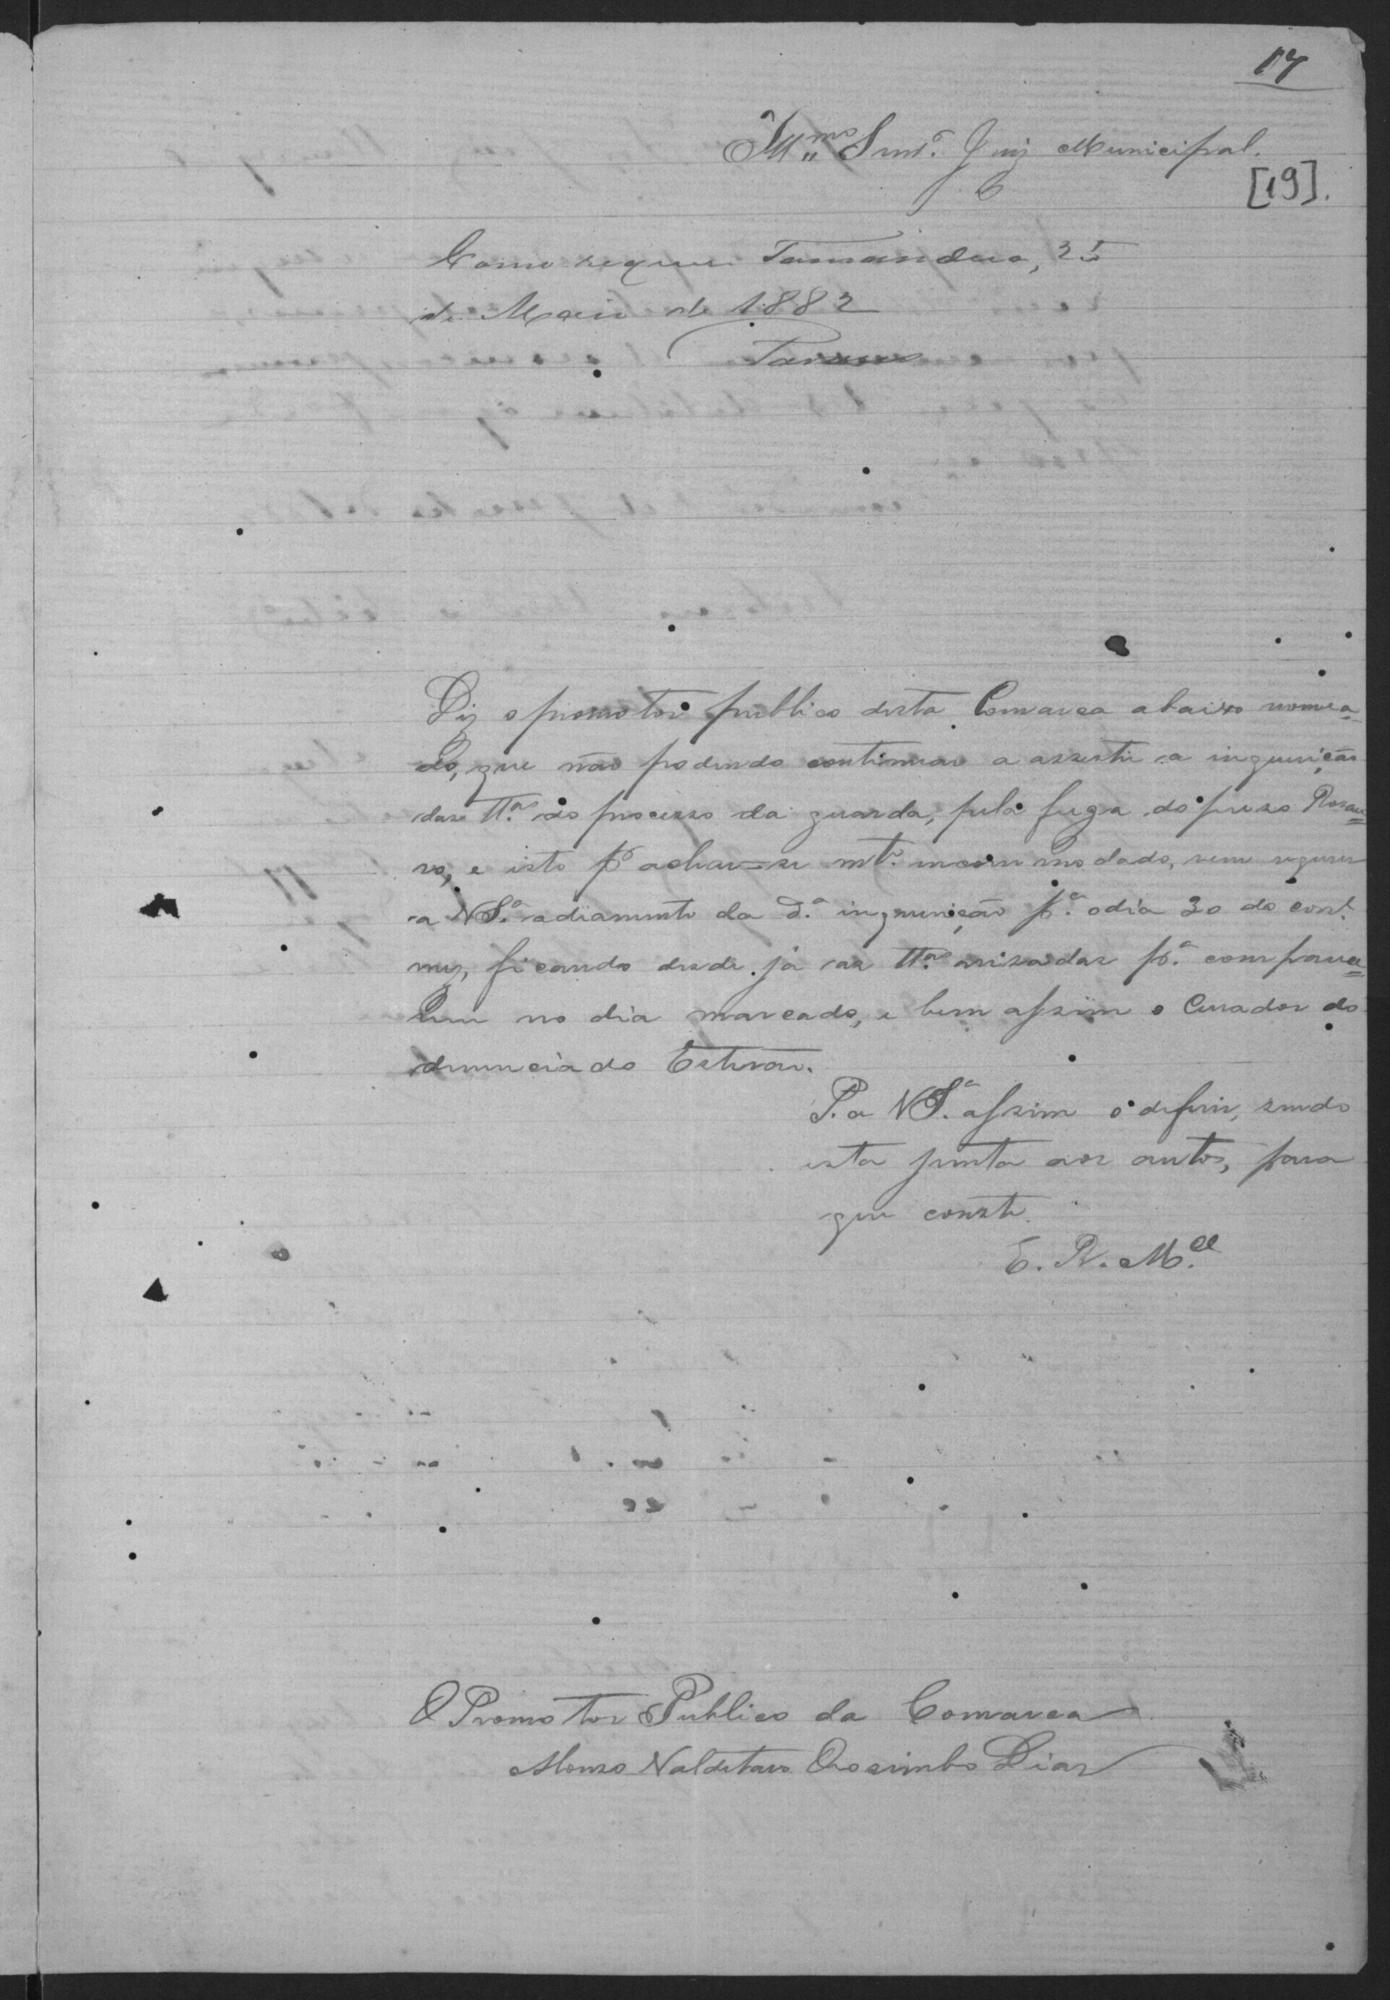 17
Illmo Snr. Juiz Municipal.
[19].
Como requer Tamandua, 25
de Maio de 1882
Diz o promotor publico desta Comarca abaixo nomea-
do, que não podendo continuar a assestir a inquirição
das ttas. do processo da guarda, pela fuga do prezo Rosau=
ro, e isto pr achar-se mto. incommodado, vem requerer
a VSa. adiamento da da. inquirição pa. o dia 30 do corre.
mez, ficando desde já as ttas. avisadas pa. comparece=
rem no dia marcado, e bem assim o Curador do
denunciado Estevão.
P. a VSa. assim o deferir, sendo
esta junta aos autos, para
que conste.
E. R. Mce.
O Promotor Publico da Comarca
Affonso Valdetaro Orosimbo Dias